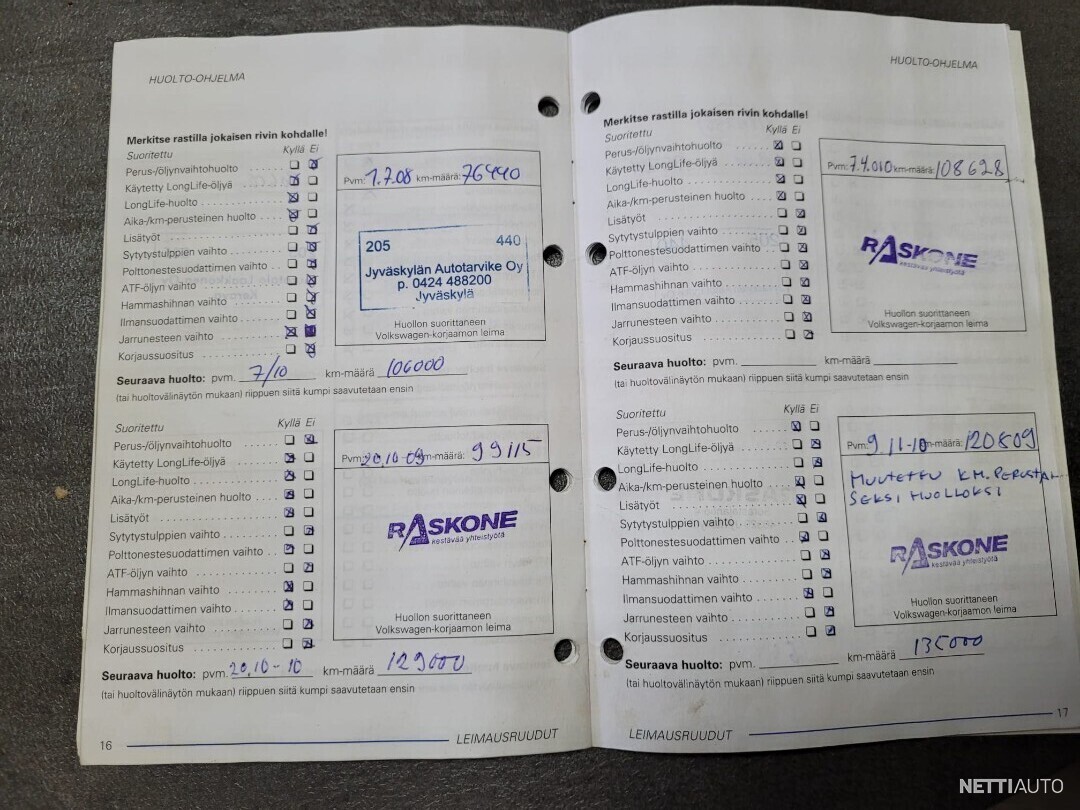 HUOLTO-OHJELMA
Merkitse rastilla jokaisen rivin kohdalle!
Suoritettu Kyllä Ei
Perus-/öljynvaihtohuolto
Käytetty LongLife-öljyä
LongLife-huolto
Aika-/km-perusteinen huolto
Lisätyöt
Sytytystulppien vaihto
Polttonestesuodattimen vaihto
ATF-öljyn vaihto
Hammashihnan vaihto
Ilmansuodattimen vaihto
Jarrunesteen vaihto
Korjaussuositus
Pvm: 1.7.08 km-määrä: 76440
205 440
Jyväskylän Autotarvike Oy
p. 0424 488200
Jyväskylä
Huollon suorittaneen
Volkswagen-korjaamon leima
Seuraava huolto: pvm. 7/10 km-määrä 106000
(tai huoltovälinäytön mukaan) riippuen siitä kumpi saavutetaan ensin
Suoritettu Kyllä Ei
Perus-/öljynvaihtohuolto
Käytetty LongLife-öljyä
LongLife-huolto
Aika-/km-perusteinen huolto
Lisätyöt
Sytytystulppien vaihto
Polttonestesuodattimen vaihto
ATF-öljyn vaihto
Hammashihnan vaihto
Ilmansuodattimen vaihto
Jarrunesteen vaihto
Korjaussuositus
Pvm: 20.10-09 km-määrä: 99115
RASKONE
kestävää yhteistyötä
Huollon suorittaneen
Volkswagen-korjaamon leima
Seuraava huolto: pvm. 20.10-10 km-määrä 129000
(tai huoltovälinäytön mukaan) riippuen siitä kumpi saavutetaan ensin
16 LEIMAUSRUUDUT
HUOLTO-OHJELMA
Merkitse rastilla jokaisen rivin kohdalle!
Suoritettu Kyllä Ei
Perus-/öljynvaihtohuolto
Käytetty LongLife-öljyä
LongLife-huolto
Aika-/km-perusteinen huolto
Lisätyöt
Sytytystulppien vaihto
Polttonestesuodattimen vaihto
ATF-öljyn vaihto
Hammashihnan vaihto
Ilmansuodattimen vaihto
Jarrunesteen vaihto
Korjaussuositus
Pvm: 7.4.010 km-määrä: 108628
RASKONE
kestävää yhteistyötä
Huollon suorittaneen
Volkswagen-korjaamon leima
Seuraava huolto: pvm. km-määrä
(tai huoltovälinäytön mukaan) riippuen siitä kumpi saavutetaan ensin
Suoritettu Kyllä Ei
Perus-/öljynvaihtohuolto
Käytetty LongLife-öljyä
LongLife-huolto
Aika-/km-perusteinen huolto
Lisätyöt
Sytytystulppien vaihto
Polttonestesuodattimen vaihto
ATF-öljyn vaihto
Hammashihnan vaihto
Ilmansuodattimen vaihto
Jarrunesteen vaihto
Korjaussuositus
Pvm: 9.11-10 km-määrä: 120809
MUUTETTU KM.PERUSTAI
SEKSI HUOLLOKSI
RASKONE
kestävää yhteistyötä
Huollon suorittaneen
Volkswagen-korjaamon leima
Seuraava huolto: pvm. km-määrä 135000
(tai huoltovälinäytön mukaan) riippuen siitä kumpi saavutetaan ensin
LEIMAUSRUUDUT 17
NETTIAUTO